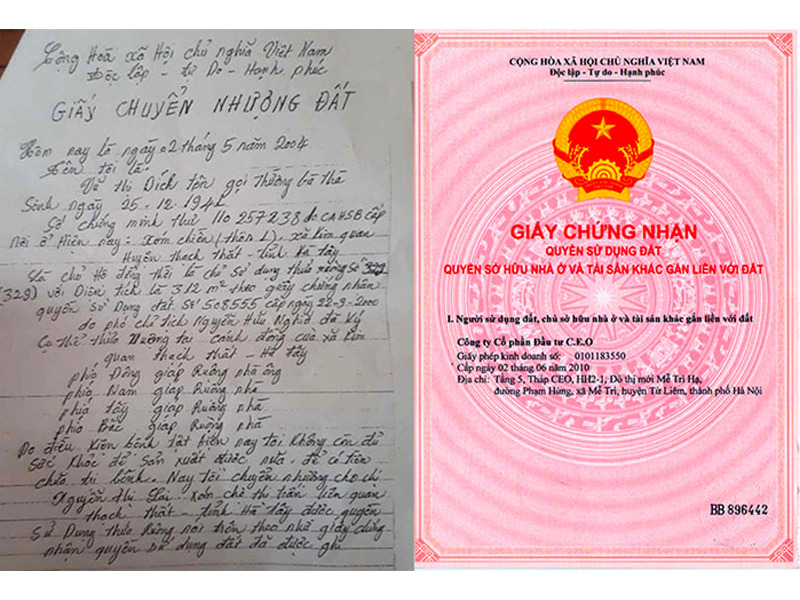 Cộng Hoà xã Hội chủ nghĩa Việt Nam
Độc lập - Tự Do - Hạnh phúc
GIẤY CHUYỂN NHƯỢNG ĐẤT
Hôm nay là ngày 02 tháng 5 năm 2004
Tên tôi là:
Vũ thị Dích tên gọi thường bà Thà
Sinh ngày 25.12.194
Số chứng minh thư 110 257238 do CAHSB cấp
Nơi ở Hiện nay: Xóm chiến (thôn 1). xã Kim quan
Huyện thạch thất - tỉnh Hà tây
Là chủ Hộ đồng thời là chủ Sử dụng thửa ruộng số 329
(329) với Diện tích là 312 m² theo giấy chứng nhận
quyền sử Dụng đất. Số S08555 cấp ngày 22-9-2000
do phó chủ tịch Nguyễn Hữu Nghĩa đã ký
Cụ thể thửa Ruộng tại cánh đồng của xã Kim
quan thạch thất - Hà tây
phía Đông giáp Ruộng nhà ông
phía Nam giáp Ruộng nhà
phía Tây giáp Ruộng nhà
phía Bắc giáp Ruộng nhà
Do điều kiện bệnh tật hiện nay tôi không còn đủ
sức khỏe để sản xuất được nữa. để có tiền
chữa trị bệnh. Nay tôi chuyển nhượng cho chị
Nguyễn Thị Hai. Xóm chè thị trấn liên quan
thạch thất - tỉnh Hà tây được quyền
Sử Dụng thửa Ruộng nói trên theo như giấy chứng
nhận quyền sử dụng đất đã được ghi
CỘNG HÒA XÃ HỘI CHỦ NGHĨA VIỆT NAM
Độc lập - Tự do - Hạnh phúc
GIẤY CHỨNG NHẬN
QUYỀN SỬ DỤNG ĐẤT
QUYỀN SỞ HỮU NHÀ Ở VÀ TÀI SẢN KHÁC GẮN LIỀN VỚI ĐẤT
I. Người sử dụng đất, chủ sở hữu nhà ở và tài sản khác gắn liền với đất
Công ty Cổ phần Đầu tư C.E.O
Giấy phép kinh doanh số: 0101183550
Cấp ngày 02 tháng 06 năm 2010
Địa chỉ: Tầng 5, Tháp CEO, HH2-1, Đô thị mới Mễ Trì Hạ,
đường Phạm Hùng, xã Mễ Trì, huyện Từ Liêm, thành phố Hà Nội
BB 896442